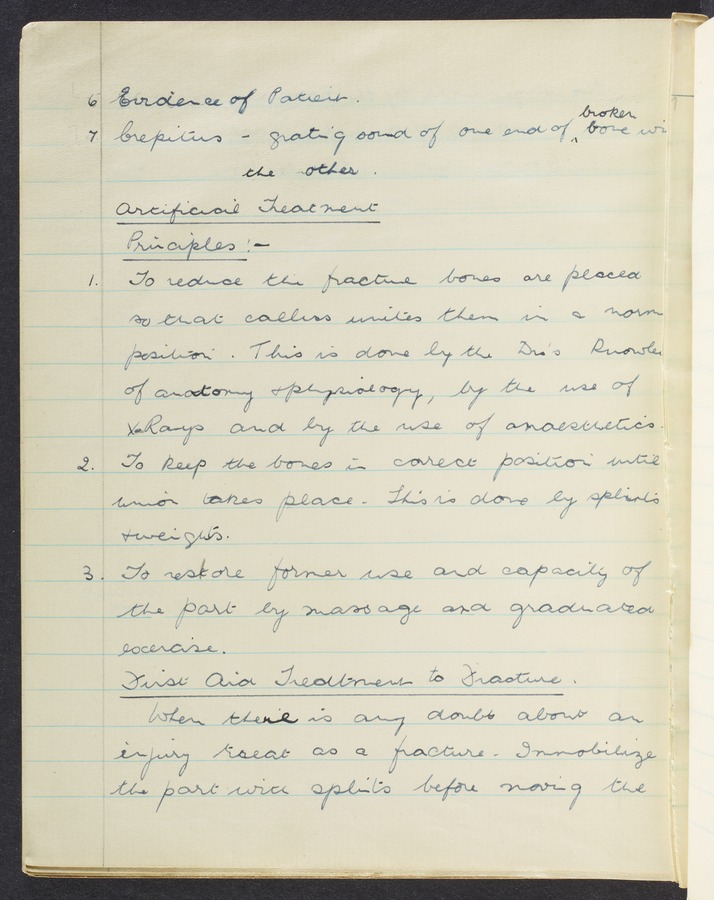 6 Evidence of Patient.
broken
7 Crepitus - grating sound of one end of ^ bone wi
the other.
Artificial Treatment
Principles :-
1. To reduce the fracture bones are placed
so that callus unites them in a norm
position. This is done by the Dr's Knowle
of anatomy + physiology, by the use of
X-Rays and by the use of anaesthetics.
2. To keep the bones in correct position until
union takes place. This is done by splints
+ weights.
3. To restore former use and capacity of
the part by massage and graduated
exercise.
First Aid Treatment to Fracture.
When there is any doubt about an
injury treat as a fracture. Immobilize
the part with splints before moving the